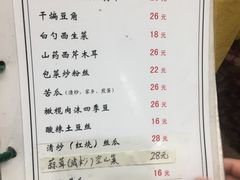 干煸豆角 26元
白勺西生菜 18元
山药西芹木耳 26元
包菜炒粉丝 22元
苦瓜(清炒、家乡、煎蛋) 26元
橄榄肉沫四季豆 26元
酸辣土豆丝 16元
清炒(红烧)丝瓜 28元
蒜茸(清炒) 28元
16元